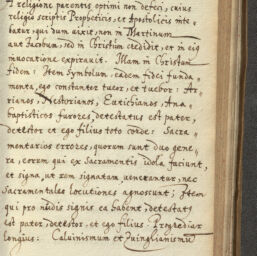 A religione parentis optimi non defeci, cuius
religio scriptis Propheticis, et Apostolicis nite-
batur, qui dum dixit, non in Martinum
aut Jacobum, sed in Christum credidit, et in eius
invocatione expiravit. Illam in Christum
fidem: Item Symbolum, eadem fidei funda-
menta, ego constanter tueor, et tuebor: Ar-
rianos, Nestorianos, Eutichianos, Ana-
baptisticos furores, detestatus est pater,
detestor et ego filius toto corde: Sacra-
mentarios errores, quorum sunt duo gene-
ra, eorum qui ex Sacramentis idola faciunt,
et signa, ut rem signatam, venerantur, nec
Sacramentales locutiones agnoscunt; Item
qui pro nudis signis ea habent, detestatus
est pater, detestor, et ego filius. Progrediar
longius: Caluinismum et Zuinglianismum